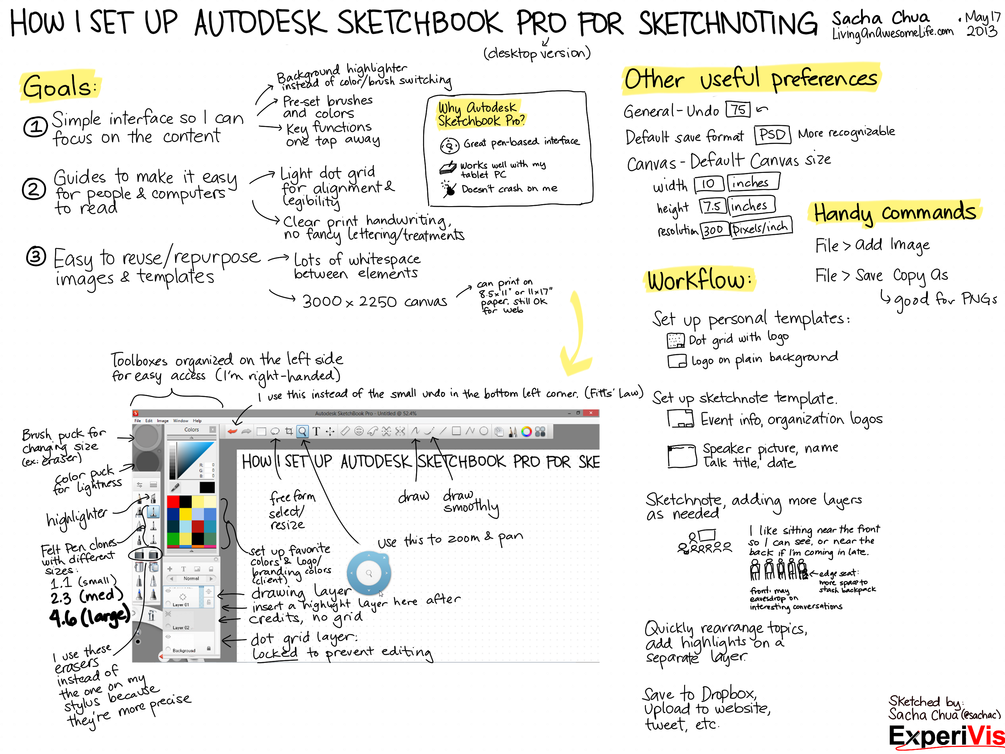 HOW I SET UP AUTODESK SKETCHBOOK PRO FOR SKETCHNOTING
(desktop version)
Sacha Chua
LivingAnAwesomeLife.com
• May 17
2013
Goals:
1 Simple interface so I can
focus on the content
Background highlighter
instead of color/brush switching
Pre-set brushes
and colors
Key functions
one tap away
2 Guides to make it easy
for people & computers
to read
Light dot grid
for alignment &
legibility
Clear print handwriting,
no fancy lettering/treatments
3 Easy to reuse/repurpose
images & templates
Lots of whitespace
between elements
3000 x 2250 canvas
can print on
8.5x11" or 11x17"
paper, still OK
for web
Why Autodesk
Sketchbook Pro?
Great pen-based interface
Works well with my
tablet PC
Doesn't crash on me
Other useful preferences
General - Undo 75
Default save format PSD More recognizable
Canvas - Default Canvas size
width 10 inches
height 7.5 inches
resolution 300 pixels/inch
Handy commands
File > add Image
File > Save Copy As
good for PNGs
Workflow:
Set up personal templates:
Dot grid with logo
Logo on plain background
Set up sketchnote template.
Event info, organization logos
Speaker picture, name
Talk title, date
Sketchnote, adding more layers
as needed
I like sitting near the front
so I can see, or near the
back if I'm coming in late.
edge seat:
more space to
stash backpack
front: may
eavesdrop on
interesting conversations
Quickly rearrange topics,
add highlights on a
separate layer.
Save to Dropbox,
upload to website,
tweet, etc.
Toolboxes organized on the left side
for easy access (I'm right-handed)
I use this instead of the small undo in the bottom left corner. (Fitts' Law)
Autodesk SketchBook Pro - Untitled @ 52.4%
File Edit Image Window Help
Colors
HOW I SET UP AUTODESK SKETCHBOOK PRO FOR SKE
Brush puck for
changing size
(ex: eraser)
Color puck
for lightness
highlighter
Felt Pen clones
with different
sizes:
1.1 (small)
2.3 (med)
4.6 (large)
I use these
erasers
instead of
the one on my
stylus because
they're more precise
free form
select/
resize
draw
draw
smoothly
use this to zoom & pan
set up favorite
colors & logo/
branding colors
(client)
Normal
Layer 01
Layer 02
Background
drawing layer
insert a highlight layer here after
credits, no grid
dot grid layer:
locked to prevent editing
Sketched by:
Sacha Chua (@sachac)
ExperiVis